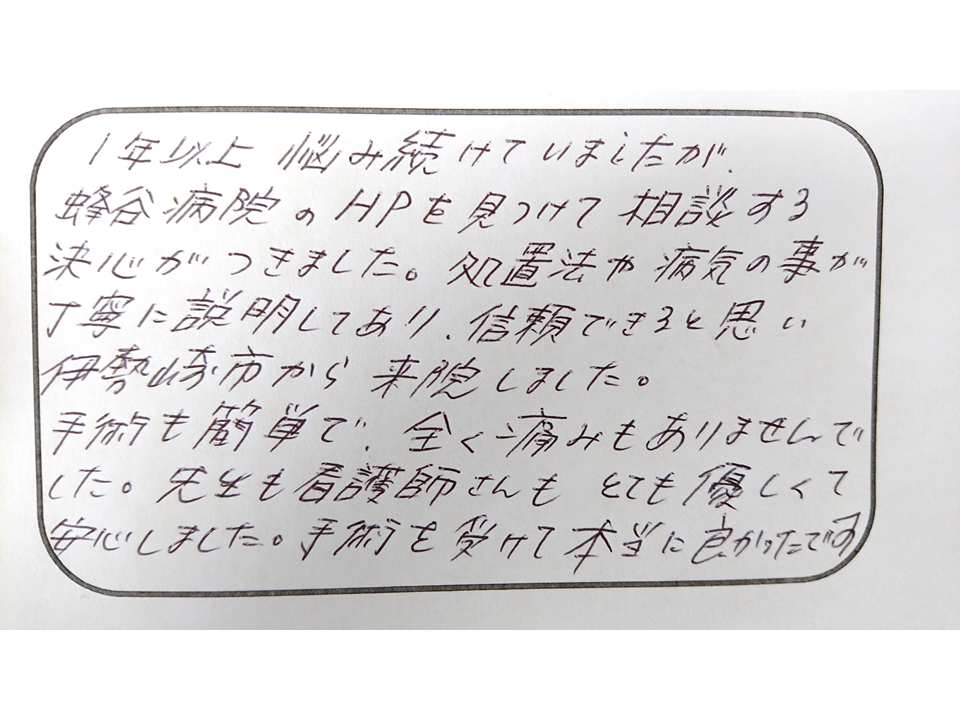 1年以上 悩み続けていましたが、
蜂谷病院のHPを見つけて相談する
決心がつきました。処置法や病気の事が
丁寧に説明してあり、信頼できると思い
伊勢崎市から来院しました。
手術も簡単で、全く痛みもありませんで
した。先生も看護師さんもとても優しくて
安心しました。手術を受けて本当に良かったです